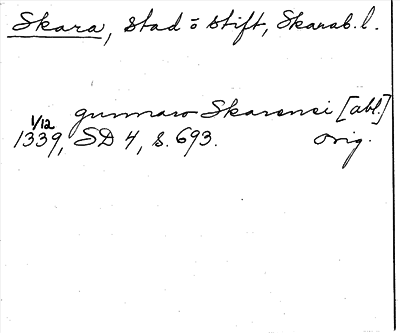 Skara, stad o stift, Skarab. l.
gunnaro Skarensi [abl.]
1/12 1339, SD 4, s. 693. orig.